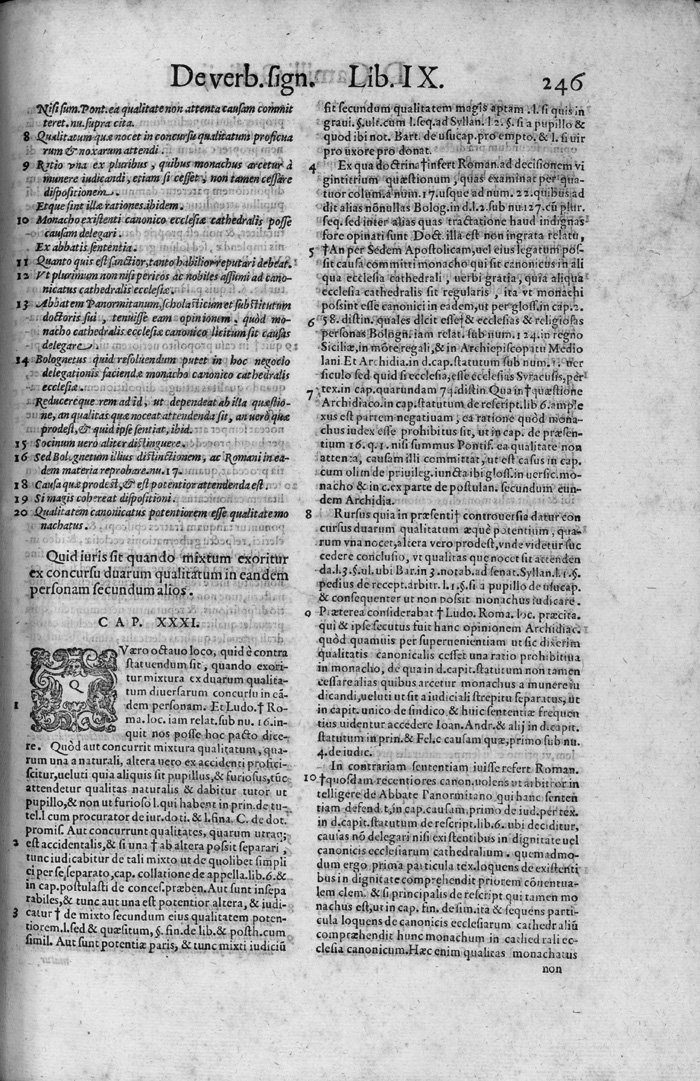 De verb. sign. Lib. IX. 246
Nisi sum. Pont. ea qualitate non attenta causam commit
teret. nu. supra cita.
8 Qualitatum quæ nocet in concursu qualitatum proficua
rum & noxarum attendi.
9 Ratio vna ex pluribus, quibus monachus arcetur à
munere iudicandi, etiam si cesset, non tamen cessare
dispositionem.
Etque sint illæ rationes. ibidem.
10 Monacho existenti canonico ecclesiæ cathedralis posse
causam delegari.
Ex abbatis sententia.
11 Quanto quis est sanctior, tanto habilior reputari debeat.
12 Vt plurimum non nisi peritos ac nobiles assumi ad cano-
nicatus cathedralis ecclesiæ.
13 Abbatem Panormitanum, scholasticum et substitutum
doctoris sui, tenuisse eam opinionem, quòd mo-
nacho cathedralis ecclesiæ canonico licitum sit causas
delegare.
14 Bolognetus quid resoluendum putet in hoc negocio
delegationis faciendæ monacho canonico cathedralis
ecclesia.
Reducereque rem ad id, ut dependeat ab ista quæstio-
ne, an qualitas quæ noceat attendenda sit, an uerò quæ
prodest, & quid ipse sentiat, ibid.
15 Socinum uero aliter distinguere.
16 Sed Bolognetum illius distinctionem, ac Romani in ea-
dem materia reprobare. nu. 17.
18 Causa quæ prodest, & est potentior attendenda est.
19 Si magis cohereat dispositioni.
20 Qualitatem canonicatus potentiorem esse qualitate mo
nachatus.
Quid iuris sit quando mixtum exoritur
ex concursu duarum qualitatum in eandem
personam secundum alios.
CAP. XXXI.
QVæro octauo loco, quid è contra
statuendum sit, quando exori-
tur mixtura ex duarum qualita-
tum diuersarum concursu in eā
1 dem personam. Et Ludo. † Ro
ma. loc. iam relat. sub nu. 16. in-
quit nos posse hoc pacto dice-
re. Quòd aut concurrit mixtura qualitatum, qua-
rum una a naturali, altera uero ex accidenti profici-
scitur, ueluti quia aliquis sit pupillus, & furiosus, tūc
attendetur qualitas naturalis & dabitur tutor ut
pupillo, & non ut furioso l. qui habent in prin. de tu-
tel. l cum procurator de iur. doti. & l. sina. C. de dot.
promis. Aut concurrunt qualitates, quarum utraq;
2 est accidentalis, & si una † ab altera possit separari,
tunc iudicabitur de tali mixto ut de quolibet simpli
ci per se, separato, cap. collatione de appella. lib. 6. &
in cap. postulasti de conces. præben. Aut sunt insepa
rabiles, & tunc aut una est potentior altera, & iudi-
3 catur † de mixto secundum eius qualitatem poten-
tiorem. l. sed & quæsitum, §. fin. de lib. & posth. cum
simil. Aut sunt potentiæ paris, & tunc mixti iudiciū
sit secundum qualitatem magis aptam. l. si quis in
graui. §. ult. cum l. seq. ad Syllan. l 2. §. si a pupillo &
quod ibi not. Bart. de usucap. pro empto. & l. si uir
pro uxore pro donat.
4 Ex qua doctrina † insert Roman. ad decisionem vi
gintitrium quæstionum, quas examinat per qua-
tuor column. a num. 17. usque ad num. 22. quibus ad
dit alias nōnullas Bolog. in d. l. 2. sub nu. 127. cū plur.
seq. sed inter alias quas tractatione haud indignas
fore opinati sunt Doct. illa est non ingrata relatu,
5 †An per Sedem Apostolicam, uel eius legatum pos-
sit causa committi monacho qui sit canonicus in ali
qua ecclesia cathedrali, uerbi gratia, quia aliqua
ecclesia cathedralis sit regularis, ita vt monachi
possint esse canonici in eadem, ut per gloss. in cap. 2.
6 58. distin. quales dicit esse † & ecclesias & religiosas
personas Bologn. iam relat. sub num. 124. in regno
Siciliæ, in mōre regali, & in Archiepiscopatu Medio
lani Et Archidia. in d. cap. statutum sub num. 1. uer
siculo sed quid si ecclesia, esse ecclesias Syracusis, per
7 tex. in cap. quorundam 74. distin. Qua in † quæstione
Archidiaco. in cap. statutum de rescript. lib 6. ample
xus est partem negatiuam, ea ratione quòd mona-
chus iudex esse prohibitus sit, ut in cap. de præsen-
tium 16. q. 1. nisi summus Pontif. ea qualitate non
attenta, causam illi committat, ut est casus in cap.
cum olim de priuileg. iuncta ibi gloss. in uersic. mo-
nacho & in c. ex parte de postulan. secundum eun-
dem Archidia.
8 Rursus quia in præsenti † controuersia datur con
cursus duarum qualitatum æquè potentium, qua-
rum vna nocet, altera vero prodest, vnde videtur suc
cedere conclusio, vt qualitas quæ nocet sit attenden
da. l. 3. §. ul. ubi Bar. in 3. notab. ad senat. Syllan. l. 1. §.
pedius de recept. arbitr. l. 1. §. si a pupillo de usucap.
& consequenter ut non possit monachus iudicare.
9 Præterea considerabat † Ludo. Roma. loc. præcita.
qui & ipse secutus fuit hanc opinionem Archidiac.
quòd quamuis per superuenientiam ut sic dixerim
qualitatis canonicalis cesset una ratio prohibitiua
in monacho, de qua in d. capit. statutum non tamen
cessare alias quibus arcetur monachus a munere iu
dicandi, ueluti ut sit a iudiciali strepitu separatus, ut
in capit. unico de sindico, & huic sententiæ frequen
tius uidentur accedere Ioan. And. & alij in d. capit.
statutum in prin. & Fel. c causam quæ, primo sub nu.
4. de iudic.
In contrariam sententiam iuisse refert Roman.
10 †quosdam recentiores canon. uolens ut arbitror in
telligere de Abbate Panormitano qui hanc senten
tiam defendit, in cap. causam. primo de iud. per tex.
in d. capit. statutum de rescript. lib 6. ubi deciditur,
causas nō delegari nisi existentibus in dignitate uel
canonicis ecclesiarum cathedralium. quem admo-
dum ergo prima particula tex. loquens de existenti
bus in dignitate comprehendit priorem conuentua-
lem clem. & si principalis de rescript qui tamen mo
nachus est, ut in cap. fin. de simi. ita & sequens parti-
cula loquens de canonicis ecclesiarum cathedraliū
compræhendit hunc monachum in cathedrali ec-
clesia canonicum. Hæc enim qualitas monachatus
non